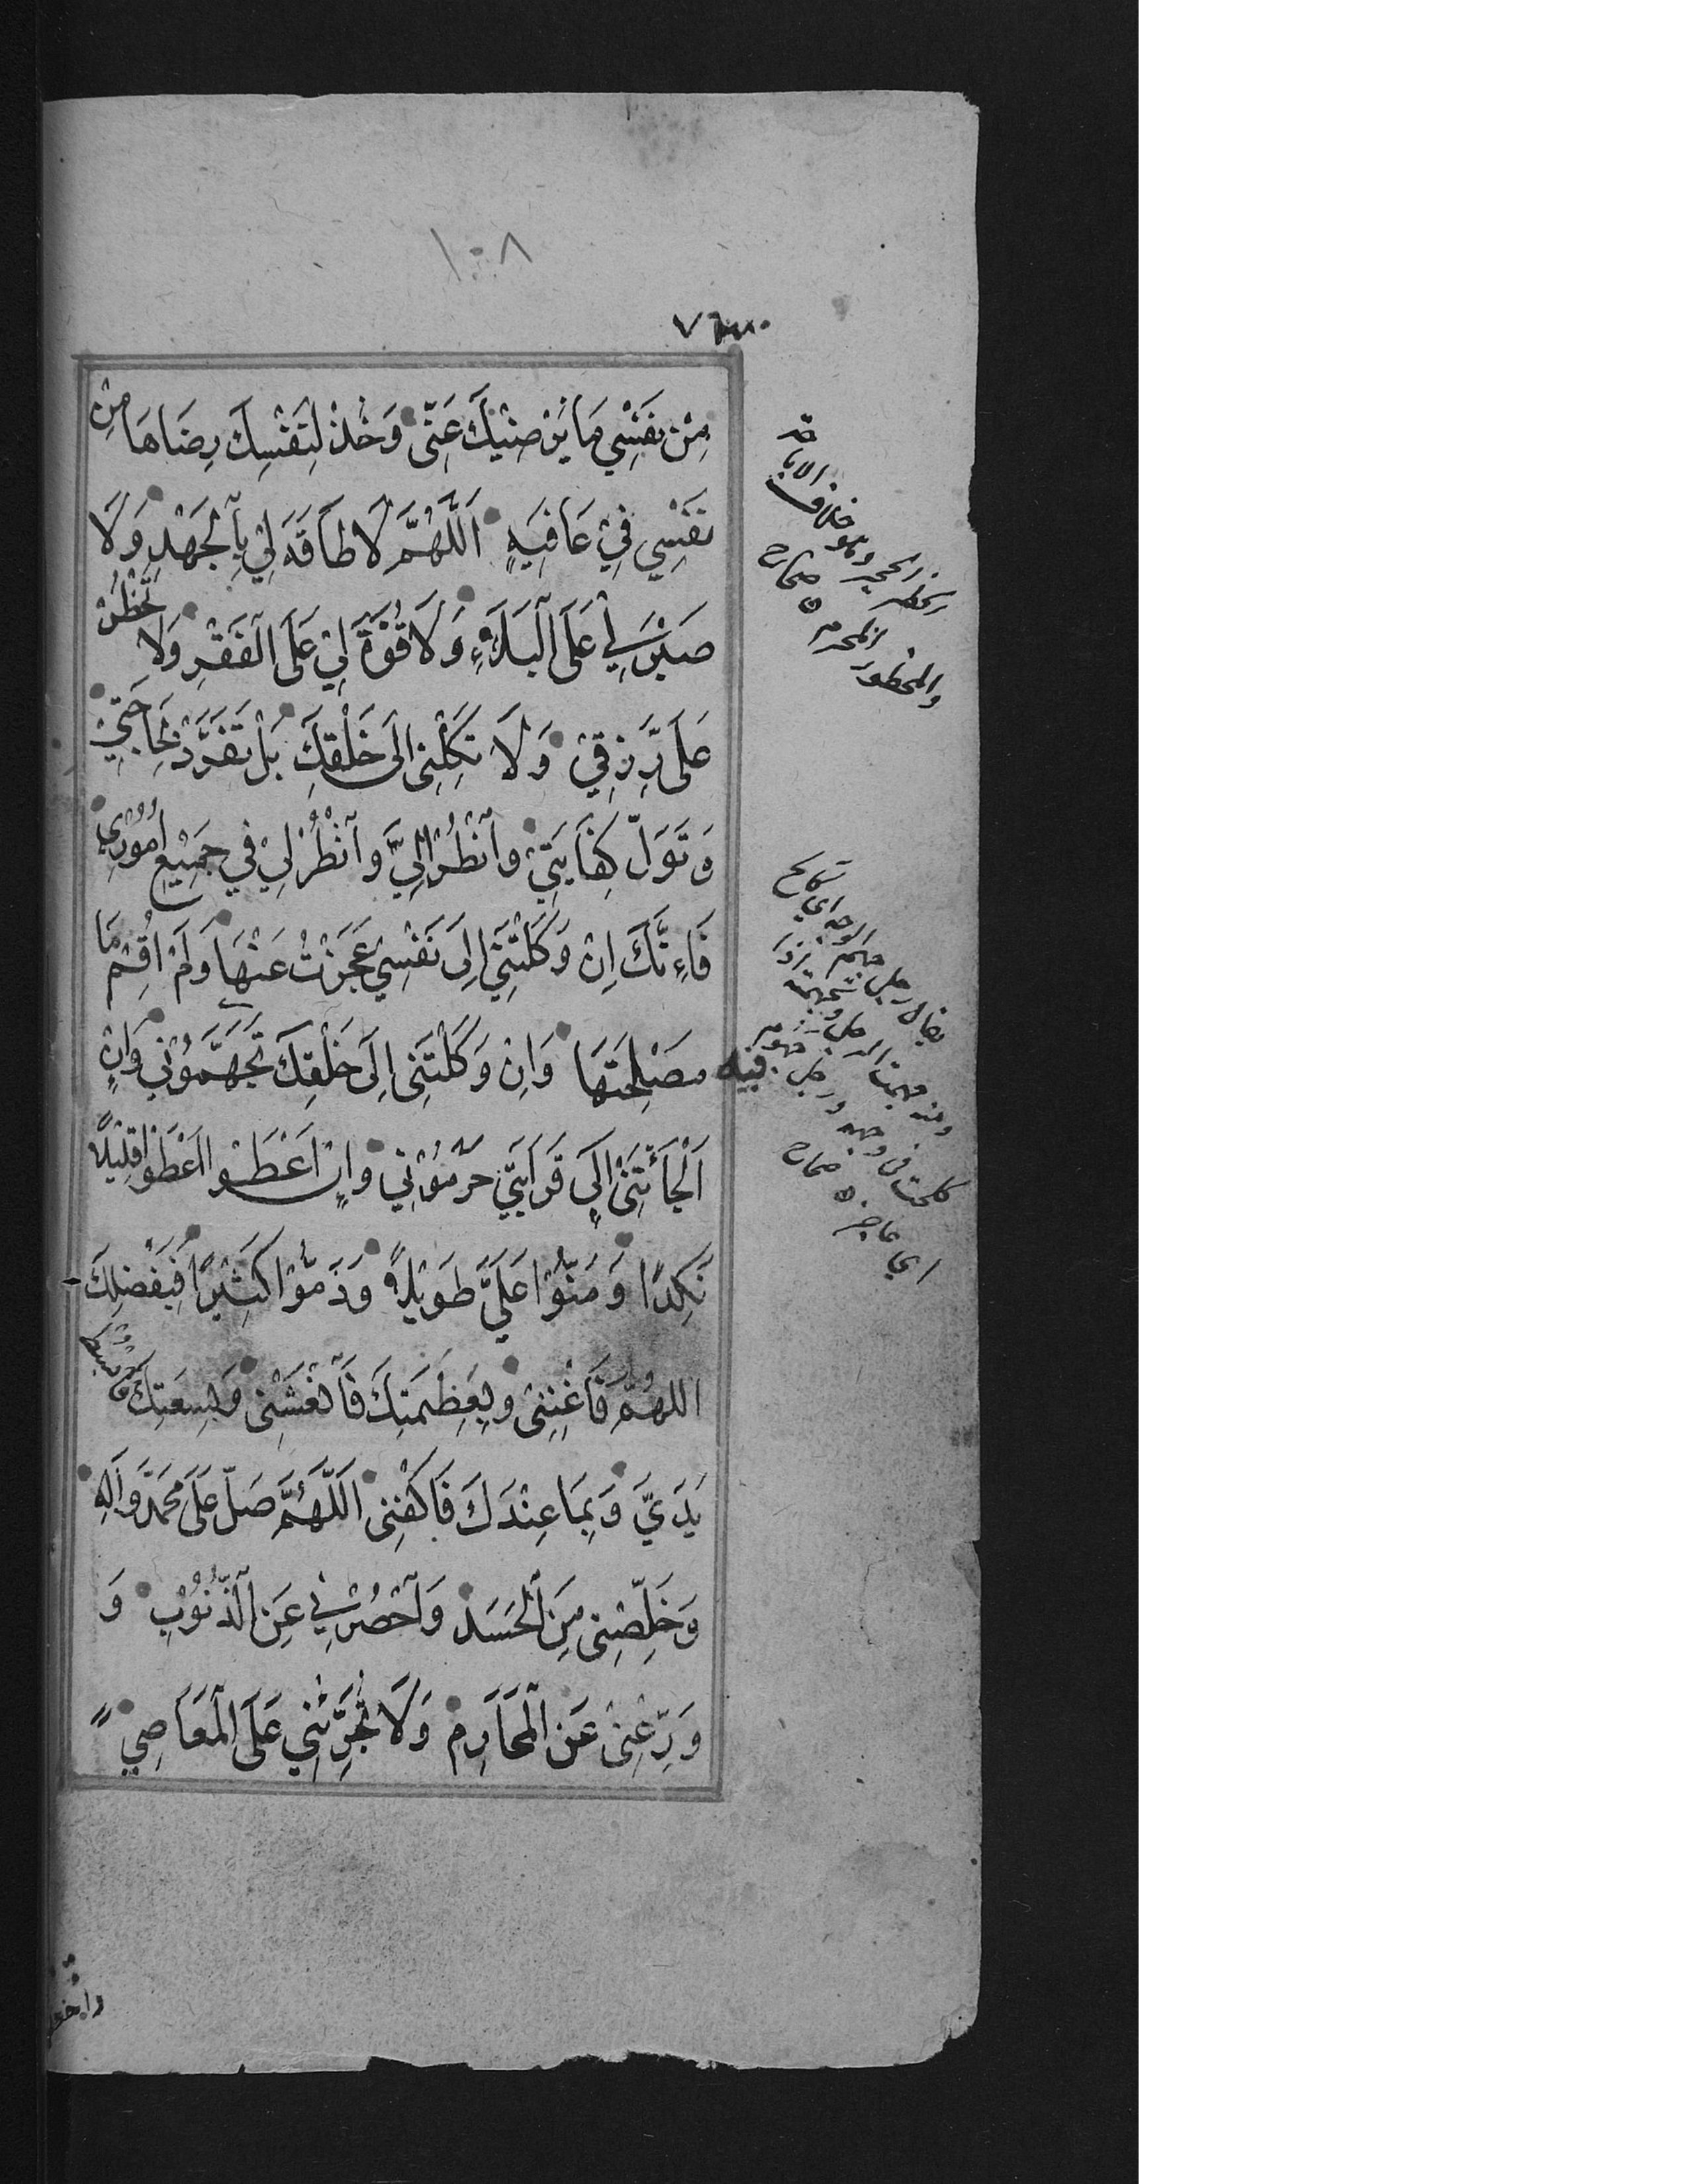 ١٠٨
مِنْ نَفْسِي مَا يَرْضِيْكَ عَنِّي وَخُذْ لِنَفْسِكَ رِضَاهَا مِنْ
نَفْسِي فِيْ عَافِيَةٍ اَللّٰهُمَّ لَا طَاقَةَ لِيْ بِالْجَهْدِ وَلَا
صَبْرَ لِي عَلَى الْبَلَاءِ وَلَا قُوَّةَ لِيْ عَلَى الْفَقْرِ وَلَا تَحْظُرْ
عَلَى رِزْقِيْ وَلَا تَكِلْنِي اِلَى خَلْقِكَ بَلْ تَفَرَّدْ بِحَاجَتِيْ
وَتَوَلَّ كِفَايَتِيْ وَانْظُرْ اِلَيَّ وَانْظُرْ لِيْ فِي جَمِيْعِ اُمُوْرِيْ
فَاِنَّكَ اِنْ وَكَلْتَنِيْ اِلَى نَفْسِيْ عَجَزْتُ عَنْهَا وَلَمْ اُقِمْ مَا
فيه مَصْلِحَتُهَا وَاِنْ وَكَلْتَنِي اِلَى خَلْقِكَ تَجَهَّمُوْنِي وَاِنْ
اَلْجَأْتَنِيْ اِلَى قَرَابَتِيْ حَرَمُوْنِي وَاِنْ اَعْطَوْا اَعْطَوْا قَلِيْلًا
نَكِدًا وَمَنُّوْا عَلَيَّ طَوِيْلًا وَذَمُّوْا كَثِيْرًا فَبِفَضْلِكَ
اللهُمَّ فَاَغْنِنِيْ وَبِعَظَمَتِكَ فَانْعَشْنِي وَبِسِعَتِكَ فَابْسُطْ
يَدَيَّ وَبِمَا عِنْدَكَ فَاكْفِنِي اَللّٰهُمَّ صَلِّ عَلَى مُحَمَّدٍ وَاٰلِهِ
وَخَلِّصْنِي مِنَ الْحَسَدِ وَاحْصُرْنِي عَنِ الذُّنُوْبِ وَ
وَرِّعْنِيْ عَنِ الْمَحَارِمِ وَلَا تُجَرِّئْنِي عَلَى الْمَعَاصِيْ
الحظر الحجر وهو خلاف الاباحة
والمحظور المحرم صحاح
يقال رجل جهم الوجه اي كالح
كلحت في وجهه
صحاح
اي عاجز